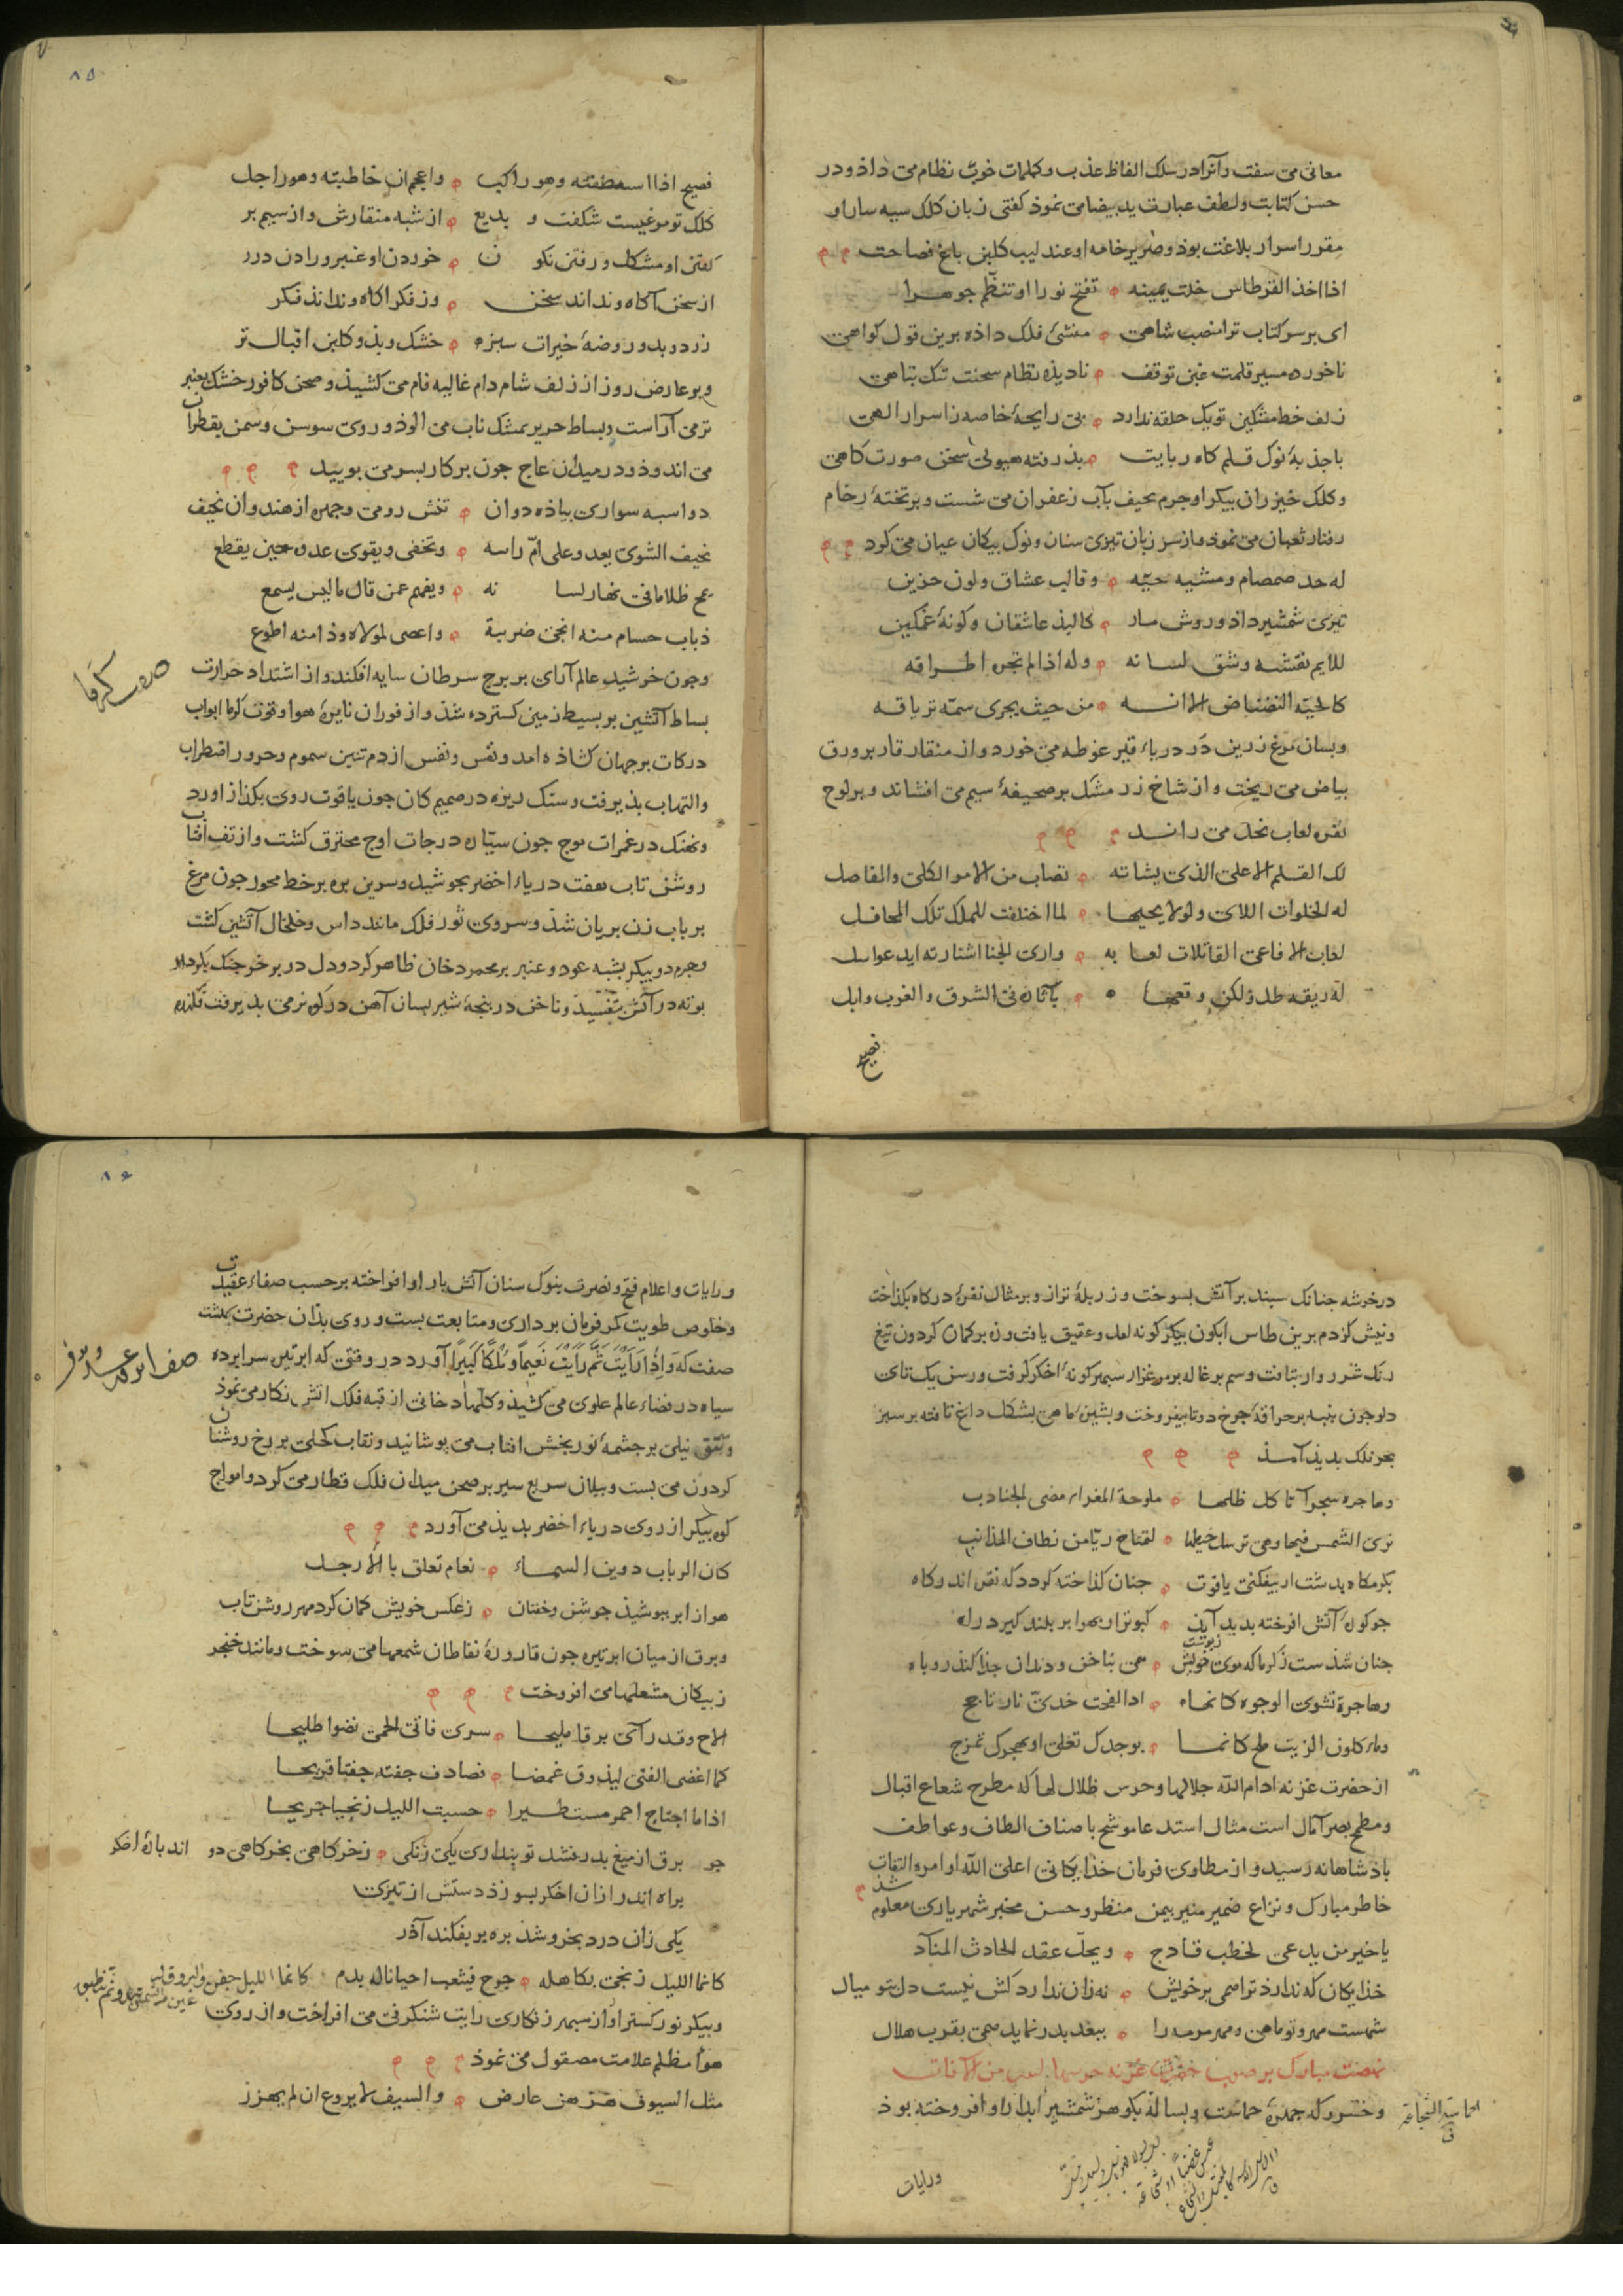 معانی می سفت و آنرا در سلک الفاظ عذب و کلمات خوب نظام می داذ و در
حسن کتابت و لطف عبارت ید بیضا می نموذ کفتی زبان کلک سیه سار او
مقرر اسرار بلاغت بوذ و صریر خامه او عندلیب کلبن باغ فصاحت
اذا اخذ القرطاس خلت یمینه تفتح نورا او تنظم جوهرا
ای بر سر کتاب ترا منصب شاهی منشئ فلک داذه برین قول کواهی
ناخورده مسیر قلمت غبن توقف نادیذه نظام سخنت ننک تباهی
زلف خط مشکین تو یک حلقه ندارد بی رایحهٔ خاصه ز اسرار الهی
با جذبهٔ نوک قلم کاه ربایت بذرفته هیولی سخن صورت کاهی
و کلک خیزران بیکر او جرم نحیف بآب زعفران می شست و بر تختهٔ رخام
رفتار ثعبان می نموذ و از سر زبان تیزی سنان و نوک بیکان عیان می کرد
له حد صمصام و مشیه حیّه و قالب عشاق و لون حزین
تیزی شمشیر داذ و روش مار کالبذ عاشقان و کونهٔ غمکین
للایم نقشه و شق لسانه و له اذا لم تجر اطراقه
کالحیّه النضناض الا انه من حیث یجری سمّه تریاقه
و بسان مرغ زرین در دریاء قیر غوطه می خورد و از منقار قار بر ورق
بیاض می ریخت و از شاخ زر مشک بر صحیفهٔ سیم می افشاند و بر لوح
نقره لعاب نحل می راند
لک القلم الاعلی الذی بشاته تصاب من الامر الکلی و المفاصل
له الخلوات اللای و لولا یحیها لما اختلفت للملک تلک المحافل
لعاب الافاعی القاتلات لعابه و اری الجنا اشتارته اید عواسل
له ریقه طل و لکن وقعها بآثاره فی الشرق و الغرب وابل
فصیح
۸۵
فصیح اذا استنطقته و هو راکب و اعجم ان خاطبته و هو راجل
کلک تو مرغیست شکفت و بدیع از شبه منقارش و از سیم بر
کفتن او مشکل و رفتن نکو ن خوردن او عنبر و زادن درر
از سخن آکاه و نداند سخن وز فکر آکاه و نداند فکر
زرد و بدو روضهٔ خیرات سبزه خشک و بذو کلبن اقبال تر
و بر عارض روز از زلف شام دام غالیه فام می کشیذ و صحن کافور خشک بعنبر
تر می آراست و بساط حریر بمشک ناب می الوذ و روی سوسن و سمن بقطران
می اندوذ و در میدان عاج جون برکار بسر می بویید
دو اسبه سواری بیاذه دوان تنش رومی و جهره از هندوان نحیف
نحیف الشوی یعدو علی امّ راسه و یحفی و یقوی عدوه حین یقطع
یمج ظلاما فی نهار لسانه و یفهم عمن قال ما لیس یسمع
ذباب حسام منه انجی ضریبة و اعصی لمولاه و ذا منه اطوع
صفت کرما
و جون خرشید عالم آرای بر برج سرطان سایه افکند و از اشتداد حرارت
بساط آتشین بر بسیط زمین کسترده شذ و از فوران نایرهٔ هوا و قوت کرما ابواب
درکات بر جهان کشاذه امد و نفس و نفس از دم تنین سموم و حرور اضطراب
و التهاب بذیرفت و سنک ریزه در صمیم کان جون یاقوت روی بکذاز اورد
و نهنک در غمرات موج جون سیّاره در جات اوج محترق کشت و از تف آفتاب
روشن تاب هفت دریاء اخضر بجوشید و سرین بره بر خط محور جون مرغ
بر باب زن بریان شذ و سروی ثور فلک مانند داس و خلخال آتشین کشت
و جرم دو بیکر بشبه عود و عنبر بر مجمر دخان ظاهر کرد و دل در بر خرجنک بکردار
بوته در آتش بتفسید و ناخن در بنجهٔ شیر بسان آهن در کوره نرمی بذیرفت و دانه
در خوشه جنانک سبند بر آتش بسوخت و زر بلهٔ ترازو بر مثال نقره در کاه بکذاخت
و نیش کژدم برین طاس ابکون بیکر کونه لعل و عقیق یافت و زه بر کمان کردون تیغ
رنک شرر وار بتافت و سم بزغاله بر مرغزار سپهر کونهٔ اخکر کرفت و رسن یک تای
دلو جون بنبه بر حراقهٔ جرخ دوتا بیفروخت و بشیزه ماهی بشکل داغ تافته بر سبز
بحر فلک بدیذ آمذ
و هاجرة سجرا تاکل ظلها ملوحة المغراء مضی الجنادب
تری الشمس فیها و هی ترسل خیطا لتمتاح ریّا من نطاف المذانب
بکرمکاه بدشت ار بیفکنی یاقوت جنان کذاخته کردد که نقره اندر کاه
جو کورهٔ آتش افروخته بدید آید کبوتر ار بهوا بر بلند کیرد راه
جنان شذست ز کرما که موی خویش ز پوست همی بناخن و دندان جذا کند روباه
و هاجرة تشوی الوجوه کانها اذا لفحت خدیّ نار تاجج
و ماء کلون الزیت ملح کانما بوجدک تغلی او بهجرک تمزج
از حضرت غزنه ادام الله جلالها و حرس ظلال لها که مطرح شعاع اقبال
و مطمح بصر آمال است مثال استدعا موشح باصناف الطاف و عواطف
باذشاهانه رسید و از مطاوی فرمان خذایکانی اعلی الله او امره التفات
خاطر مبارک و نزاع ضمیر منیر بیمن منظر و حسن مخبر شهریاری معلوم شذ
یا خیر من یدعی لخطب فادح و یحلّ عقد الحادث المنآد
خذایکان که ندارذ ترا همی بر خویش نه زان ندارد کش نیست دل بتو میال
شهست مهر و تو ماهی و مهر مر مه را ببعد بدر نماید همی بقرب هلال
نهضت مبارک بر صوب حضرت غزنه حرسها الله من الآفات
و خسرو که جمرهٔ حماست و بسالة بکوهر شمشیر ابدار او افروخته بوذ
الحماسة الشجاعة
ورایات
۸۶
و رایات و اعلام فتح و نصرت بنوک سنان آتش بار او افراخته بر حسب صفاء عقیدت
و خلوص طویت کمر فرمان برداری و متابعت بست و روی بذان حضرت بهشت
صفت که وَاِذَا رَاَیْتَ ثَمَّ رَاَیْتَ نَعِیمًا وَمُلْکًا کَبِیرًا آورد در وقتی که ابر تیره سرابرده
صفت ابر و رعد و برف
سیاه در فضاء عالم علوی می کشیذ و کلهاء دخانی از قبه فلک اتش نکار می نموذ
و تتق نیلی بر جشمهٔ نور بخش افتاب می بوشانید و نقاب کحلی بر رخ روشنان
کردون می بست و بیلان سریع سیر بر صحن میدان فلک قطار می کرد و امواج
کوه بیکر از روی دریاء اخضر بدیذ می آورد
کان الرباب دوین السماء نعام تعلق بالارجل
هوا ز ابر ببوشیذ جوشن و خفتان ز عکس خویش کمان کرد مهر روشن تاب
و برق از میان ابر تیره جون قارورهٔ نفاطان شمعها می سوخت و مانند خنجر
ز بیکان مشعلها می افروخت
الاح و قد رآی برقا ملیحا سری فاتی الحمی نضوا طلیحا
کما اغضی الفتی لیذوق غمضا فصادف جفنه جفنا قریحا
اذا ما اهتاج احمر مستطیرا حسبت اللیل زنجیا جریحا
جو برق از میغ بدرفشد تو بنداری یکی زنکی ز خرکاهی بخرکاهی دواند بارهٔ اخکر
براه اندر از ان اخکر بسوزذ دستش از تیزی
یکی زان درد بخروشد بره بر بفکند آذر
کانما اللیل زنجی بکاهله جرح فیثعب احیانا له بدم
و بیکر نور کستر او از سپهر زنکاری رایت شنکرفی می افراخت و از روی
هواء مظلم علامت مصقول می نموذ
مثل السیوف هز هن عارض و السیف لا یروع ان لم یهزز